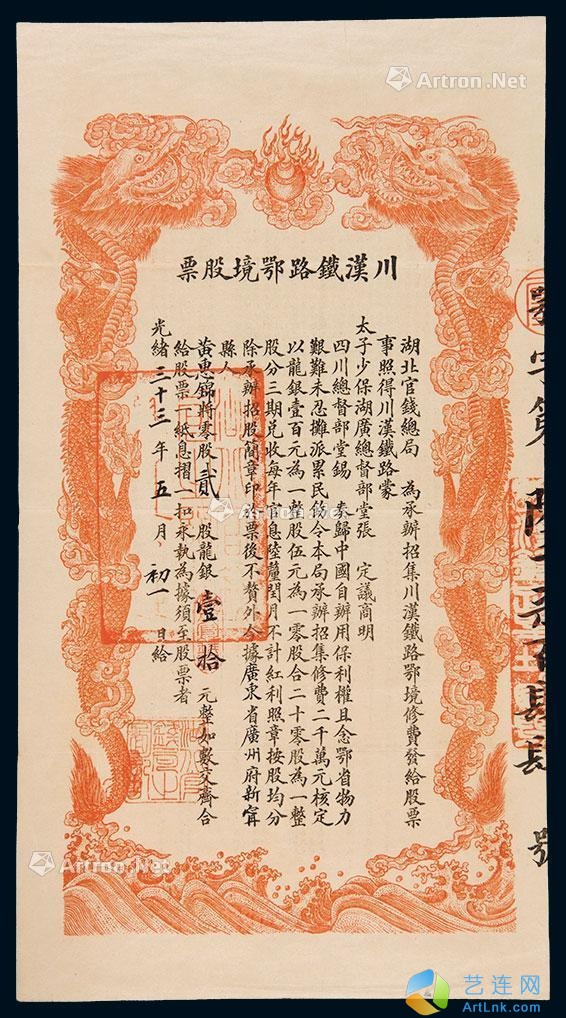 Artron.Net
川漢鐵路鄂境股票
湖北官錢總局 為承辦招集川漢鐵路鄂境修費發給股票
事照得川漢鐵路蒙
太子少保湖廣總督部堂張 定議商明
四川總督部堂錫 奏歸中國自辦用保利權且念鄂省物力
艱難未忍攤派累民飭令本局承辦招集修費二千萬元核定
以龍銀壹百元為一整股伍元為一零股合二十零股為一整
股分三期兌收每年官息陸釐閏月不計紅利照章按股均分
除承辦招股簡章印於票後不贅外今據廣東省廣州府新甯
縣人
黃惠錦將零股貳 股龍銀 壹拾 元整如數交齊合
給股票一紙息摺一扣永執為據須至股票者
光緒 三十三 年 五 月 初一 日給
號
Artron.Net
Artron.Net
艺连网
ArtLnk.com